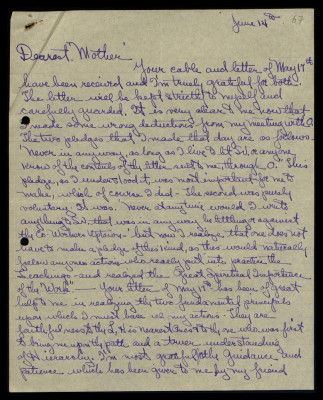 June 14th
67
Dearest Mother
Your cable and letter of May 17th
have been received and I'm truly grateful for both.
The letter will be kept strictly to myself and
carefully guarded. It is very clear to me now that
I made some wrong deductions from my meeting with O.
The two pledges that I made that day are as follows -
"Never in any way, as long as I live to let S, or anyone
know of the contents of the letter sent to me, through O." This
pledge, as I understood it was most important for me to
make, which of course I did - The second was purely
voluntary. It was "Never at any time would I write
anything to S. that was in any way belittling or against
the Co-Workers options" but now I realize that one does not
have to make a pledge of this kind, as this would naturally
follow anyones actions who really put into practice the
Teachings and realized the "Great Spiritual Importance
of the Work" — Your letter of May 17th has been of great
help to me in realizing the two fundamental principles
upon which I must base all my actions - They are -
faithfulness to thy G, His nearest and to thy one who was first
to bring me upon thy path and a truer understanding
of Hierarchy. I'm most grateful for the Guidance and
patience which has been given to me by my friend